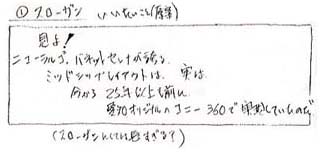 ① スローガン いいたいこと(原案)
見よ!
ニュールノー、バネットセレナが誇る。
ミッドシップレイアウトは、実は
今から25年以上も前に
愛知オリジナルのコニー360で実現していたのだ
(スローガンにしては長すぎる?)